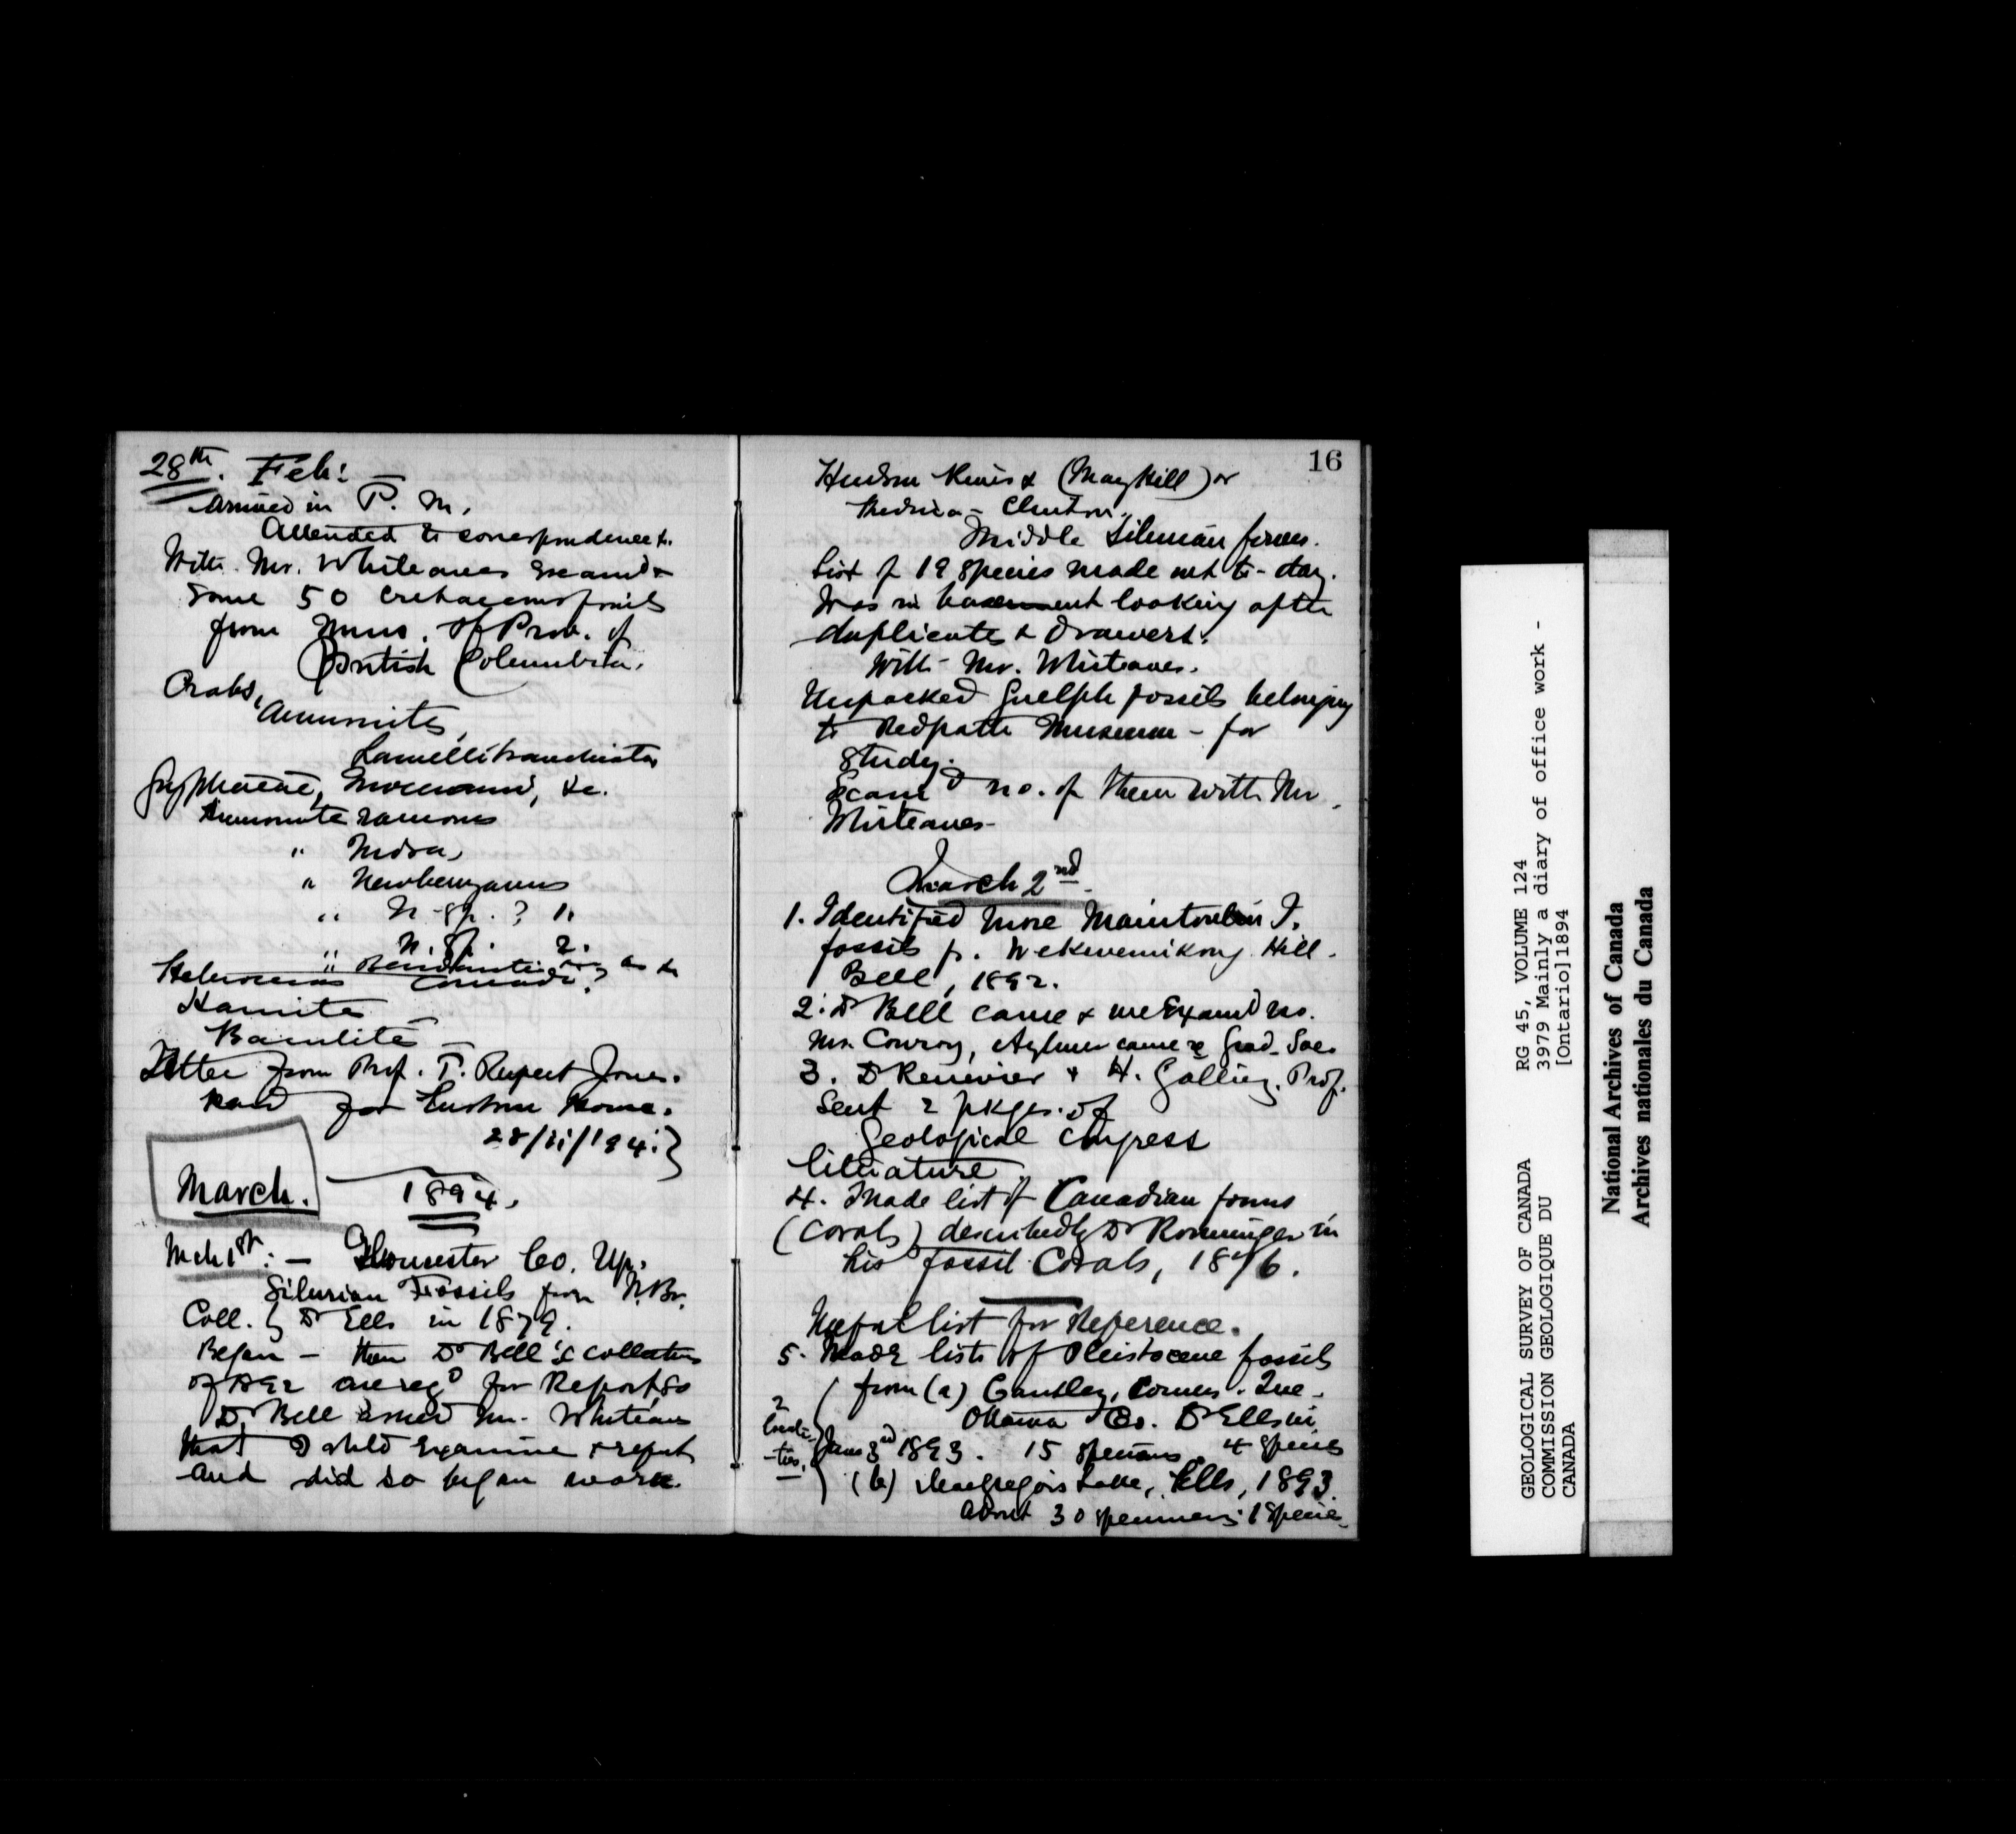 28th. Feb: —
Arrived in P. M.
Attended to correspondence &.
With Mr. Whiteaves Examd &
Some 50 cretaceous fossils
from Mus. of Prov. of
British Columbia.
Crabs,
Ammonites,
Lamellibranchiata
Gryphaeae, &c.
Ammonite ramosus
" Indra,
" Newberryanus
" N. sp. ? 1.
" N. sp. 2.
Hamite —
Baculite —
Letter from Prof. T. Rupert Jones.
for Custom House.
28/ii/194.
March. 1894.
Mch 1st: — Gloucester Co. Up.
Silurian Fossils from N. Br.
Coll. by Dr Ells in 1879.
Began — then Dr Bell's collection
of 1892 are reqd for Report so
Dr Bell asked Mr. Whiteaves
that I shld Examine & report
and did so began work.
16
Hudson River & (May Hill) or
Medina - Clinton.
Middle Silurian forms.
List of 19 species made out to-day.
Was in basement looking after
duplicates & drawers.
With - Mr. Whiteaves.
Unpacked Guelph fossils belonging
to Redpath Museum - for
Study.
Examd no. of them with Mr.
Whiteaves -
March 2nd.
1. Identified more Manitoulin I.
fossils fr. Wekwemikong Hill.
Bell, 1892.
2. Dr Bell came & we Examd no.
Mr. Conroy, Aylmer came re
3. Dr Renevier & H. Golliez. Prof.
Sent 2 pkges. of
Geological Congress
literature.
4. Made list of Canadian forms
(corals) described by Dr Rominger in
his fossil Corals, 1876.
Useful list for Reference.
5. Made lists of Pleistocene fossils
from (a) Cantley, Corners. Que.
Ottawa Co. Dr Ells in
2 locali-
-ties.
3rd 1893. 15 specimens. 4 species
(b) MacGregors Lake, Ells, 1893.
About 30 specimens 1 Species
RG 45, VOLUME 124
3979 Mainly a diary of office work -
[Ontario]1894
GEOLOGICAL SURVEY OF CANADA
COMMISSION GEOLOGIQUE DU
CANADA
National Archives of Canada
Archives nationales du Canada